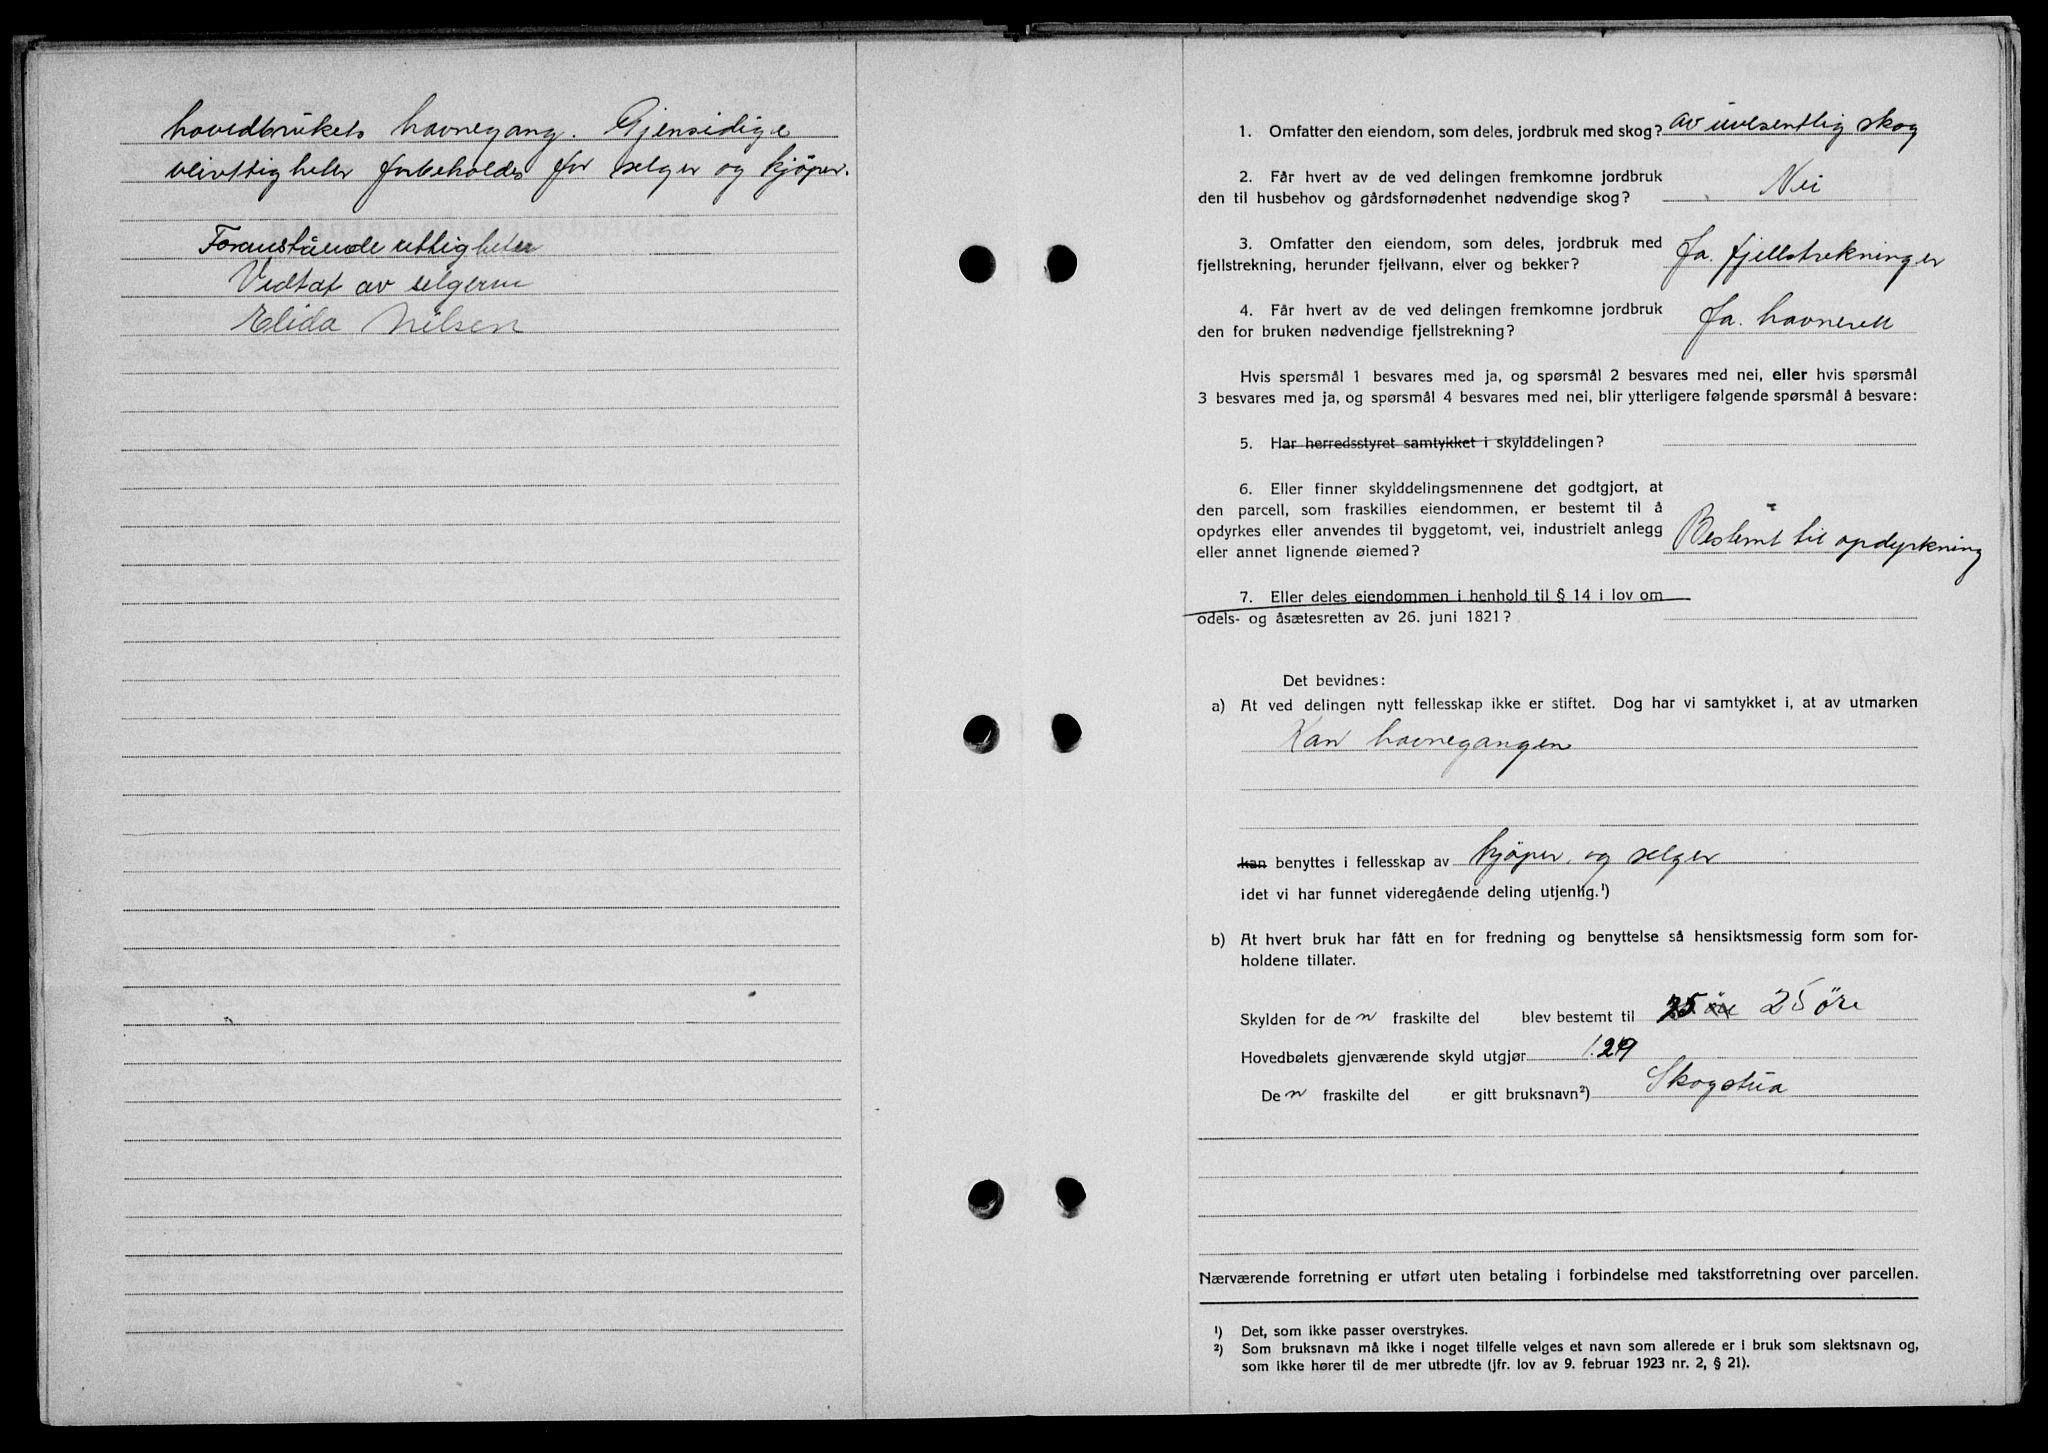 hovedbrukets havnegang. Gjensidige
veirettigheter forbeholdes for selger og kjöper.
Foranstående rettigheter
Vedtat av selgeren
Elida Nilsen
1. Omfatter den eiendom, som deles, jordbruk med skog? av uvesentlig skog
2. Får hvert av de ved delingen fremkomne jordbruk
den til husbehov og gårdsfornødenhet nødvendige skog? Nei
3. Omfatter den eiendom, som deles, jordbruk med
fjellstrekning, herunder fjellvann, elver og bekker? Ja. fjellstrekninger
4. Får hvert av de ved delingen fremkomne jordbruk
den for bruken nødvendige fjellstrekning? Ja. havnerett
Hvis spørsmål 1 besvares med ja, og spørsmål 2 besvares med nei, eller hvis spørsmål
3 besvares med ja, og spørsmål 4 besvares med nei, blir ytterligere følgende spørsmål å besvare:
5. Har herredsstyret samtykket i skylddelingen?
6. Eller finner skylddelingsmennene det godtgjort, at
den parcell, som fraskilles eiendommen, er bestemt til å
opdyrkes eller anvendes til byggetomt, vei, industrielt anlegg
eller annet lignende øiemed? Bestemt til opdyrkning
7. Eller deles eiendommen i henhold til § 14 i lov om
odels- og åsætesretten av 26. juni 1821?
Det bevidnes:
a) At ved delingen nytt fellesskap ikke er stiftet. Dog har vi samtykket i, at av utmarken
Kan havnegangen
kan benyttes i fellesskap av kjöper og selger
idet vi har funnet videregående deling utjenlig.¹)
b) At hvert bruk har fått en for fredning og benyttelse så hensiktsmessig form som for-
holdene tillater.
Skylden for den fraskilte del blev bestemt til 25 öre 25 öre
Hovedbølets gjenværende skyld utgjør 1.29
Den fraskilte del er gitt bruksnavn²) Skogstua
Nærværende forretning er utført uten betaling i forbindelse med takstforretning over parcellen.
¹) Det, som ikke passer overstrykes.
²) Som bruksnavn må ikke i noget tilfelle velges et navn som allerede er i bruk som slektsnavn og,
som ikke hører til de mer utbredte (jfr. lov av 9. februar 1923 nr. 2, § 21).